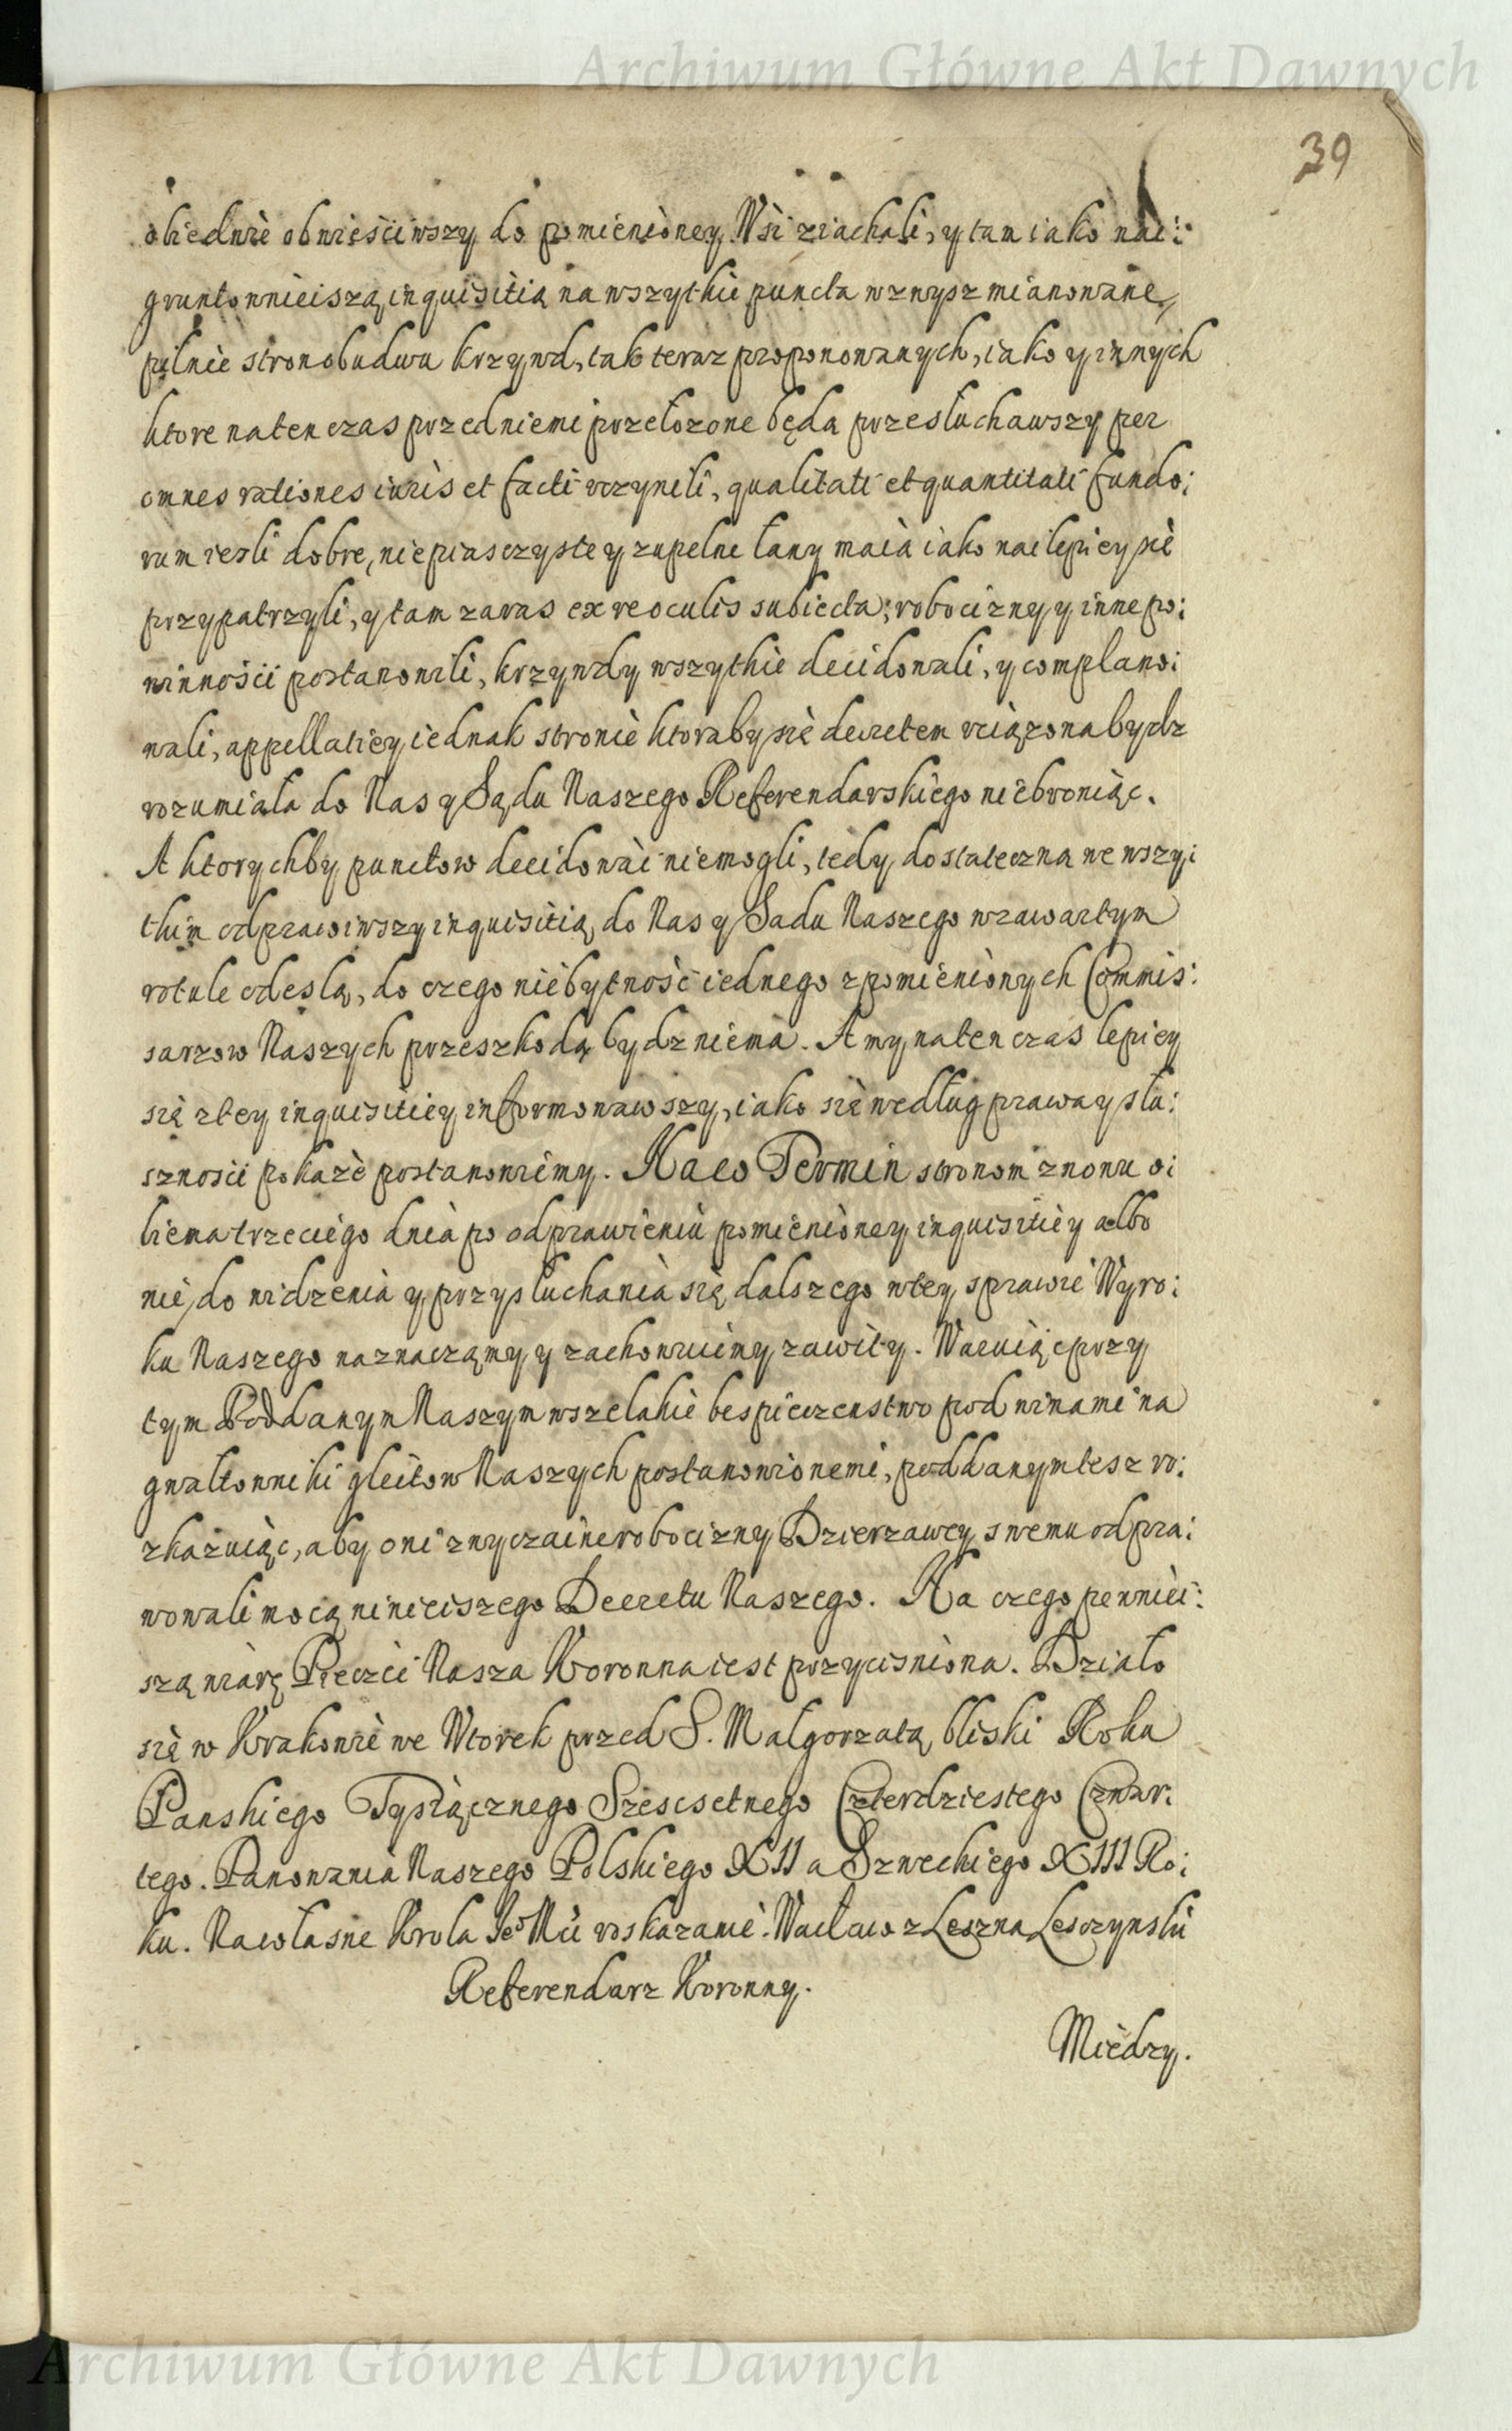 Archiwum Główne Akt Dawnych
39
obiednie obwieściwszy do pomienioney Wsi ziachali, y tam iako nai:
gruntownieiszą inquisitią na wszytkie puncta wzwysz mianowane,
pilnie stron obudwu krzywd, tak teraz proponowanych, iako y innych
ktore na ten czas przed niemi przełozone będą przesłuchawszy per
omnes rationes iuris et facti uczynili, qualitati et quantitati fundo:
rum iesli dobre, nie piasczyste y zupełne łany maią iako nailepiey się
przypatrzyli, y tam zaras ex re oculis subiecta; robocizny y inne po:
winności postanowili, krzywdy wszytkie decidowali, y complano:
wali, appellatiey iednak stronie ktoraby się decretem uciązona bydz
rozumiała do Nas y Sądu Naszego Referendarskiego niebroniąc.
A ktorychby punctow decidowac niemogli, tedy dostateczną we wszy:
tkim odprawiwszy inquisitią do Nas y Sadu Naszego w zawartym
rotule odeslą, do czego niebytność iednego z pomienionych Commis:
sarzow Naszych przeszkodą bydz niema. A my na ten czas lepiey
się z tey inquisitiey informowawszy, iako się według prawa y słu:
sznosci pokaze postanowimy. Na co Termin stronom znowu o:
biema trzeciego dnia po odprawieniu pomienioney inquisitiey albo
nie, do widzenia y przysłuchania się dalszego w tey sprawie Wyro:
ku Naszego naznaczamy y zachowuiemy zawity. Waruiąc przy
tym Poddanym Naszym wszelakie bespieczenstwo pod winami na
gwałtowniki gleitow Naszych postanowionemi, poddanym tesz ro:
zkazuiąc, aby oni zwyczaine robocizny Dzierzawcy swemu odpra:
wowali mocą ninieiszego Decretu Naszego. Na czego pewniei:
szą wiarę Pieczęć Nasza Koronna iest przycisniona. Działo
się w Krakowie we Wtorek przed S. Małgorzatą bliski Roku
Panskiego Tysiącznego Szescsetnego Czterdziestego Czwar:
tego. Panowania Naszego Polskiego XII a Szweckiego XIII Ro:
ku. Na własne Krola Jeo Mći roskazanie. Wacław z Leszna Lesczynski
Referendarz Koronny.
Między.
Archiwum Główne Akt Dawnych